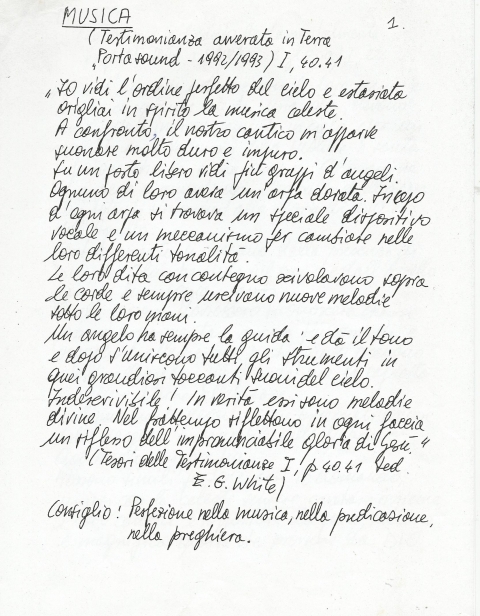 MUSICA 1.
(Testimonianza avverata in Terra
"Portasound - 1992/1993) I, 40.41
"Io vidi l'ordine perfetto del cielo e estasiata
origliai in spirito la musica celeste.
A confronto, il nostro cantico m'apparve
suonare molto duro e impuro.
Su un posto libero vidi più gruppi d'angeli.
Ognuno di loro aveva un'arpa dorata. In capo
d'ogni arpa si trovava un speciale dispositivo
vocale e un meccanismo per cambiare nelle
loro differenti tonalità.
Le loro dita con contegno scivolavano sopra
le corde e sempre uscivano nuove melodie
sotto le loro mani.
Un angelo ha sempre la guida e dà il tono
e dopo s'uniscono tutti gli strumenti in
quei grandiosi toccanti suoni del cielo.
Indescrivibile! In verità essi sono melodie
divine. Nel frattempo riflettono in ogni faccia
un riflesso dell'impronunciabile gloria di Gesù."
(Tesori delle Testimonianze I, p 40.41 ted.
E. G. White)
Consiglio! Perfezione nella musica, nella predicazione,
nella preghiera.